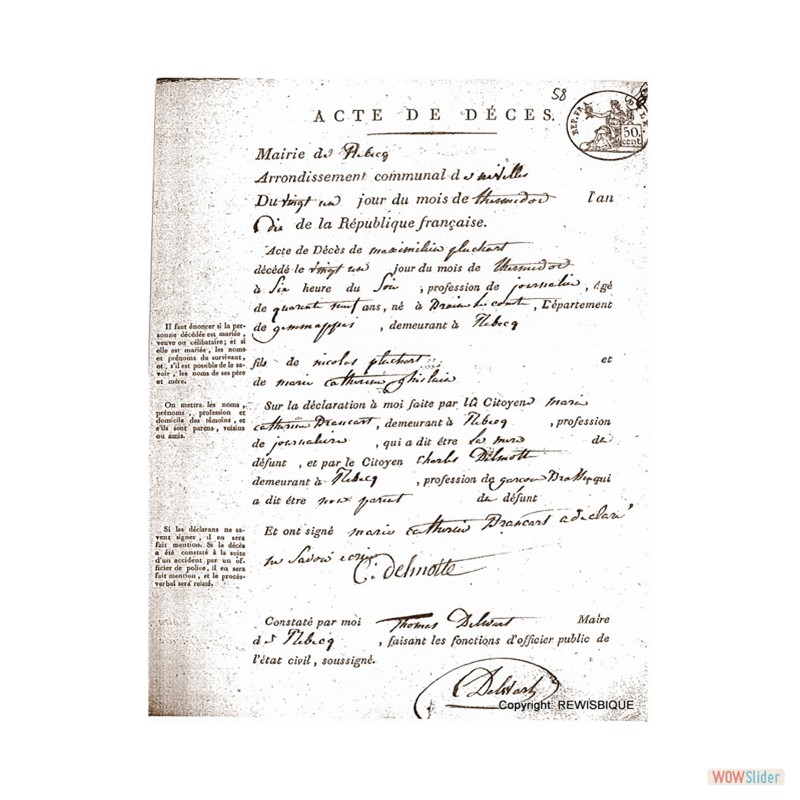 58
ACTE DE DÉCES.
REP. FRA
50.
cent
Mairie de Rebecq
Arrondissement communal de nivelles
Du vingt un jour du mois de thermidor l'an
Dix de la République française.
Acte de Décès de maximilien pluchart
décédé le vingt un jour du mois de thermidor
à Six heure du Soir , profession de journalier , âgé
de quarante neuf ans, né à Braine le comte , Département
de gemmappes , demeurant à Rebecq
Il faut énoncer si la per-
sonne décédée est mariée,
veuve ou célibataire; et si
elle est mariée, les noms
et prénoms du survivant,
et, s'il est possible de le sa-
voir, les noms de ses père
et mère.
fils de nicolas pluchart et
de marie catherine ghislain
On mettra les noms,
prénoms, profession et
domicile des témoins, et
s'ils sont parens, voisins
ou amis.
Sur la déclaration à moi faite par la Citoyene marie
catherine Brancart , demeurant à Rebecq , profession
de journaliere , qui a dit être la de
défunt , et par le Citoyen Charles Delmotte
demeurant à Rebecq , profession de garcon qui
a dit être non parent de défunt
Si les déclarans ne sa-
vent signer, il en sera
fait mention. Si le décès
a été constaté à la suite
d'un accident par un of-
ficier de police, il en sera
fait mention, et le procès-
verbal sera relaté.
Et ont signé marie catherine Brancart a declaré
ne Savoir ecrire
C. delmotte
Constaté par moi Thomas Delwart Maire
de Rebecq , faisant les fonctions d'officier public de
l'état civil, soussigné.
Delwart
Copyright REWISBIQUE
WOWSlider